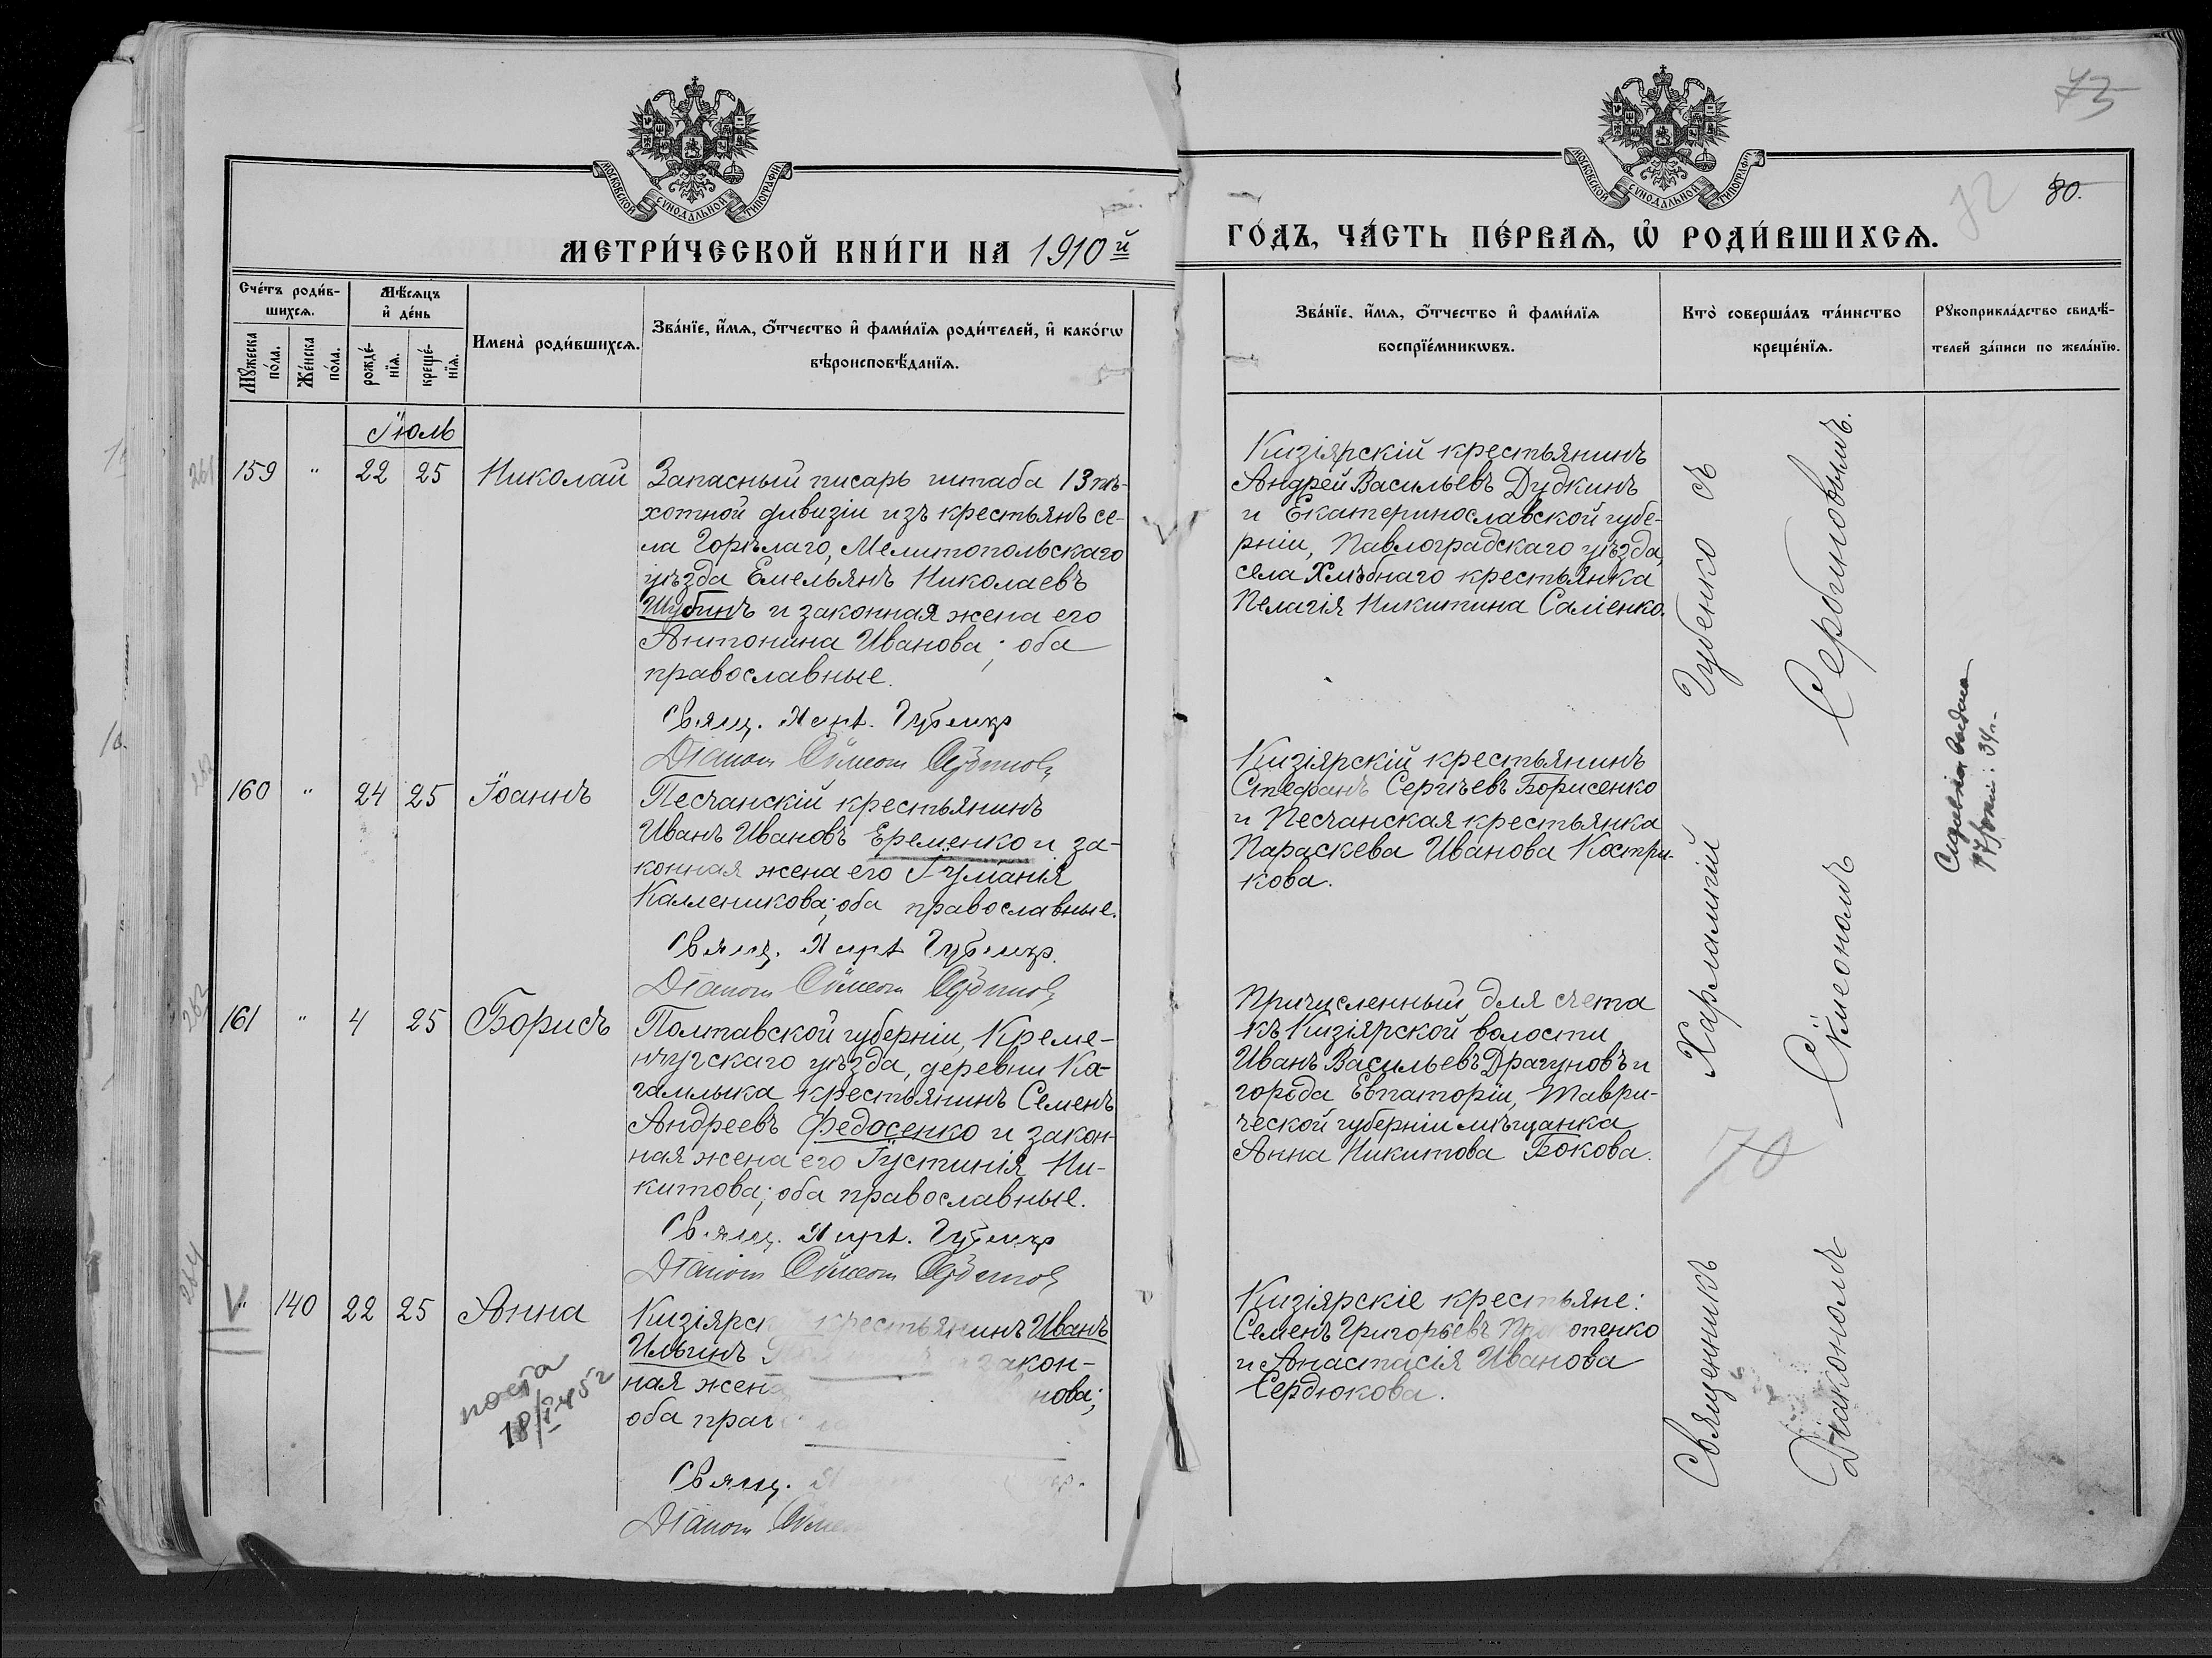 73
72
80.
МОСКОВСКОЙ СѴНОДАЛЬНОЙ ТИПОГРАФІИ
МОСКОВСКОЙ СѴНОДАЛЬНОЙ ТИПОГРАФІИ
МЕТРИ́ЧЕСКОЙ КНИ́ГИ НА 1910й
ГО́ДЪ, ЧА́СТЬ ПЕ́РВАѦ, Ѡ҆ РОДИ́ВШИХСѦ.
Сче́тъ роди́в-
шихсѧ.
Мꙋ́жеска по́ла.
Же́нска по́ла.
Мѣ́сѧцъ
и҆ де́нь
рожде́-
нїѧ.
креще́-
нїѧ.
Имена̀ роди́вшихсѧ.
Зва́нїе, и҆́мѧ, ѻ҆́тчество и҆ фами́лїѧ роди́телей, и҆ како́гѡ
вѣроисповѣ́данїѧ.
Зва́нїе, и҆́мѧ, ѻ҆́тчество и҆ фами́лїѧ
воспрїе́мникѡвъ.
Кто̀ соверша́лъ та́инство
креще́нїѧ.
Рꙋкоприкла́дство свидѣ́-
телей за́писи по жела́нїю.
Іюль
261
159 " 22 25 Николай
Запасный писарь штаба 13 пѣ-
хотной дивизіи изъ крестьянъ се-
ла Горѣлаго, Мелитопольскаго
уѣзда Емельянъ Николаевъ
Шубинъ и законная жена его
Антонина Иванова; оба
православные.
Свящ. Губенко
Діаконъ Сѵмеонъ
Кизіярскій крестьянинъ
Андрей Васильевъ Дудкинъ
и Екатеринославской губе-
рніи, Павлоградскаго уѣзда,
села Хлѣбнаго крестьянка
Пелагія Никитина Саліенко.
262
160 " 24 25 Іоаннъ
Песчанскій крестьянинъ
Иванъ Ивановъ Еременко и за-
конная жена его Іуліанія
Калленикова; оба православные.
Свящ. Губенко.
Діаконъ Сѵмеонъ
Кизіярскій крестьянинъ
Стефанъ Сергѣевъ Борисенко
и Песчанская крестьянка
Параскева Иванова Костри-
кова.
161 " 4 25 Борисъ
Полтавской губерніи, Креме-
нчугскаго уѣзда, деревни Ка-
гамлыка крестьянинъ Семенъ
Андреевъ Федосенко и закон-
ная жена его Іустинія Ни-
китова; оба православные.
Свящ. Губенко
Діаконъ Сѵмеонъ
Причисленный для счета
къ Кизіярской волости
Иванъ Васильевъ Драгуновъ и
города Евпаторіи, Таври-
ческой губерніи мѣщанка
Анна Никитова Бокова.
264
V " 140 22 25 Анна
Кизіярск крестьянинъ Иванъ
Ильинъ закон-
ная жена нова;
оба прав
Свящ.
Діаконъ Сѵмео
Кизіярскіе крестьяне:
Семенъ Григорьевъ Прокопенко
и Анастасія Иванова
Сердюкова.
Священникъ Харлампій Губенко съ
Діакономъ Сѵмеономъ Сербиновымъ.
70